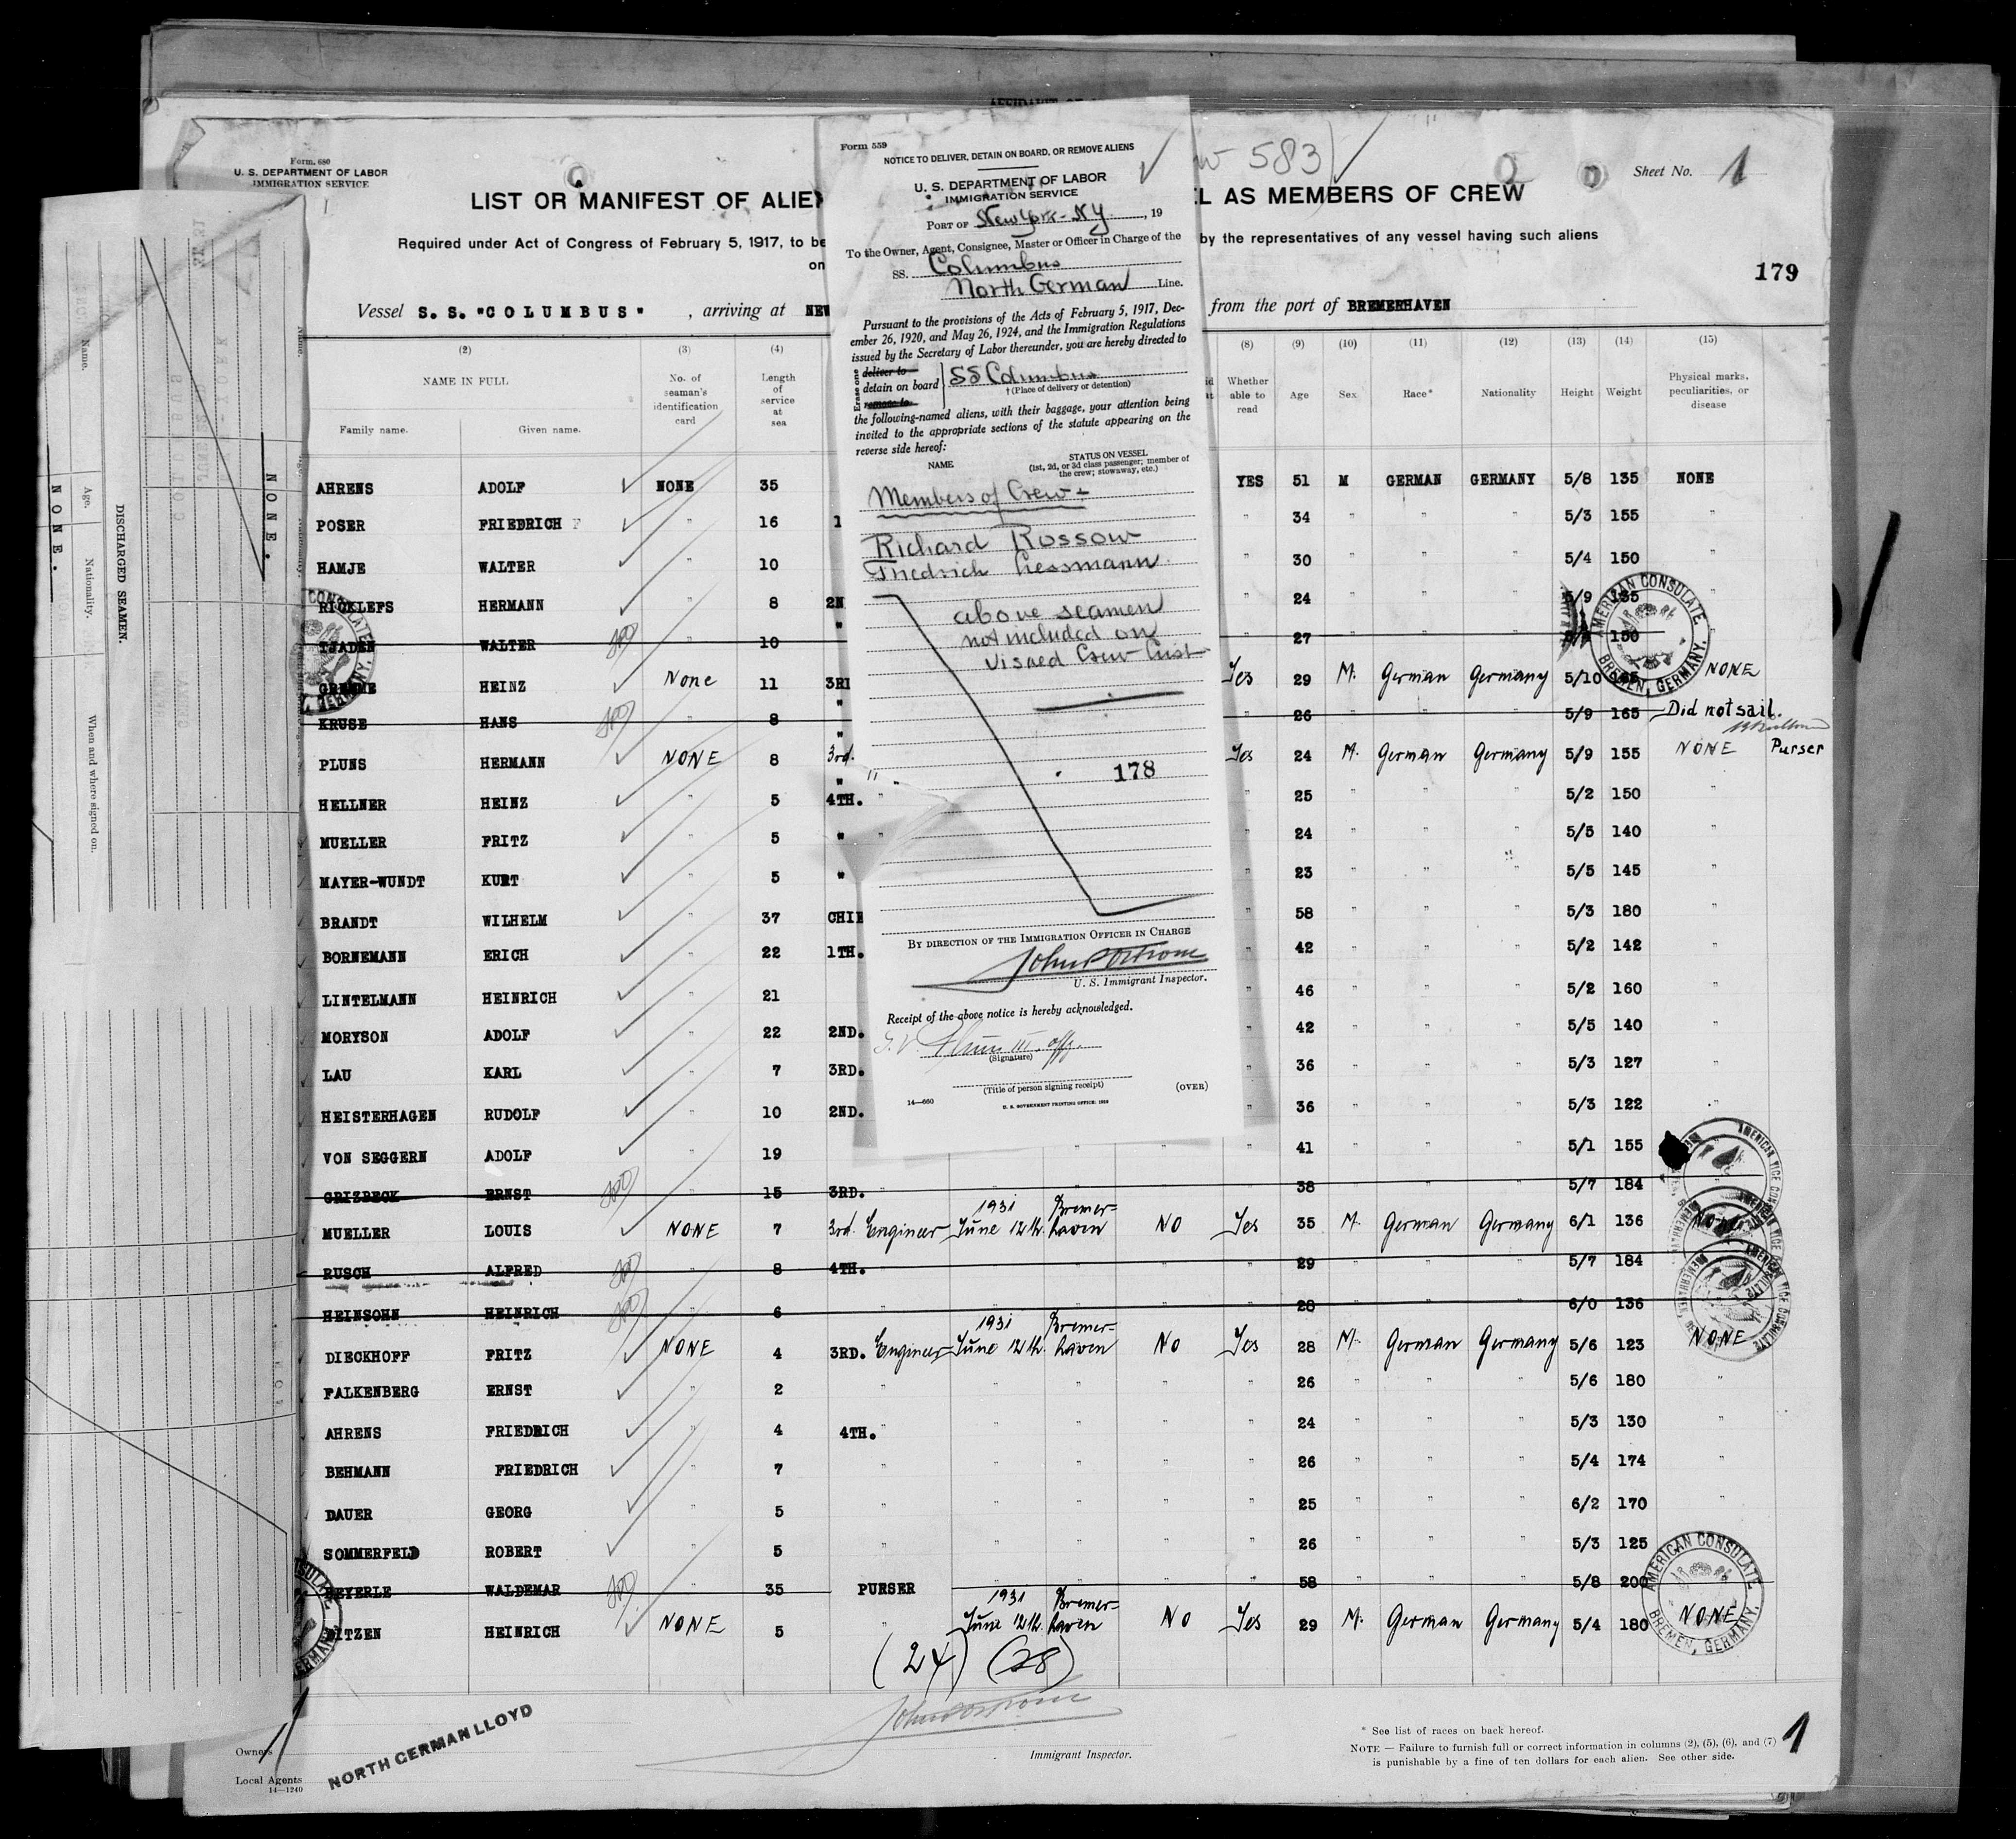 Form 680
U. S. DEPARTMENT OF LABOR
IMMIGRATION SERVICE
LIST OR MANIFEST OF ALIE
AS MEMBERS OF CREW
583
Sheet No. 1
Required under Act of Congress of February 5, 1917, to be
by the representatives of any vessel having such aliens
on
179
Vessel S. S. "COLUMBUS" , arriving at NEW
from the port of BREMERHAVEN
Form 559
NOTICE TO DELIVER, DETAIN ON BOARD, OR REMOVE ALIENS
U. S. DEPARTMENT OF LABOR
IMMIGRATION SERVICE
PORT OF New York - NY , 19
To the Owner, Agent, Consignee, Master or Officer in Charge of the
SS. Columbus
North German Line.
Pursuant to the provisions of the Acts of February 5, 1917, Dec-
ember 26, 1920, and May 26, 1924, and the Immigration Regulations
issued by the Secretary of Labor thereunder, you are hereby directed to
Erase one
deliver to
detain on board SS Columbus
remove to
† (Place of delivery or detention)
the following-named aliens, with their baggage, your attention being
invited to the appropriate sections of the statute appearing on the
reverse side hereof:
NAME STATUS ON VESSEL
(1st, 2d, or 3d class passenger; member of
the crew; stowaway, etc.)
Members of Crew -
Richard Rossow
Friedrich Hessmann
above seamen
not included on
visaed Crew List
178
BY DIRECTION OF THE IMMIGRATION OFFICER IN CHARGE
U. S. Immigrant Inspector.
Receipt of the above notice is hereby acknowledged.
(Signature)
(Title of person signing receipt)
(OVER)
14—660
U. S. GOVERNMENT PRINTING OFFICE
(2) (3) (4) (8) (9) (10) (11) (12) (13) (14) (15)
NAME IN FULL
Family name. Given name.
No. of seaman's identification card
Length of service at sea
Whether able to read
Age
Sex
Race*
Nationality
Height
Weight
Physical marks, peculiarities, or disease
AHRENS ADOLF NONE 35 YES 51 M GERMAN GERMANY 5/8 135 NONE
POSER FRIEDRICH F " 16 1 " 34 " " " 5/3 155 "
HAMJE WALTER " 10 " 30 " " " 5/4 150 "
RICKLEFS HERMANN " 8 2N " 24 " " " 5/9 135
TJADEN WALTER " 10 " " 27 " " " 150 "
HEINZ None 11 3RD Yes 29 M. German Germany 5/10 NONE
KRUSE HANS " 8 " " 26 " " " 5/9 165 Did not sail.
PLUNS HERMANN NONE 8 3rd. Yes 24 M. German Germany 5/9 155 NONE Purser
HELLNER HEINZ " 5 4TH. " " 25 " " " 5/2 150 "
MUELLER FRITZ " 5 " " " 24 " " " 5/5 140 "
MAYER-WUNDT KURT " 5 " " 23 " " " 5/5 145 "
BRANDT WILHELM " 37 CHIE " 58 " " " 5/3 180 "
BORNEMANN ERICH " 22 1TH. " 42 " " " 5/2 142 "
LINTELMANN HEINRICH " 21 " 46 " " " 5/2 160 "
MORYSON ADOLF " 22 2ND. " 42 " " " 5/5 140 "
LAU KARL " 7 3RD. " 36 " " " 5/3 127 "
HEISTERHAGEN RUDOLF " 10 2ND. " 36 " " " 5/3 122 "
VON SEGGERN ADOLF " 19 " " " " 41 " " " 5/1 155
GRIZBECK ERNST " 15 3RD. " " " " " 38 " " " 5/7 184 "
MUELLER LOUIS NONE 7 3rd. Engineer 1931 June 12th. Bremer-haven NO Yes 35 M. German Germany 6/1 136 NONE
RUSCH ALFRED " 8 4TH. " " " " 29 " " " 5/7 184
HEINSOHN HEINRICH " 6 " " " " " 28 " " " 6/0 136
DIECKHOFF FRITZ NONE 4 3RD. Engineer 1931 June 12th. Bremer-haven NO Yes 28 M. German Germany 5/6 123 NONE
FALKENBERG ERNST " 2 " " " " " 26 " " " 5/6 180 "
AHRENS FRIEDRICH " 4 4TH. " " " " " 24 " " " 5/3 130 "
BEHMANN FRIEDRICH " 7 " " " " " 26 " " " 5/4 174 "
DAUER GEORG 5 " " " " " 25 " " " 6/2 170 "
SOMMERFELD ROBERT " 5 " " " " " 26 " " " 5/3 125
BEYERLE WALDEMAR " 35 PURSER " " " " 58 " " " 5/8 200
HEINRICH NONE 5 " 1931 June 12th. Bremer-haven NO Yes 29 M. German Germany 5/4 180 NONE
(24) (28)
AMERICAN CONSULATE
BREMEN, GERMANY.
AMERICAN VICE CONSULATE
AMERICAN CONSULATE
BREMEN, GERMANY.
Immigrant Inspector.
Owners
Local Agents
14—1240
NORTH GERMAN LLOYD
* See list of races on back hereof.
NOTE — Failure to furnish full or correct information in columns (2), (5), (6), and (7)
is punishable by a fine of ten dollars for each alien. See other side.
1
Name.
Age.
Nationality.
When and where signed on.
DISCHARGED SEAMEN.
NONE.
NONE.